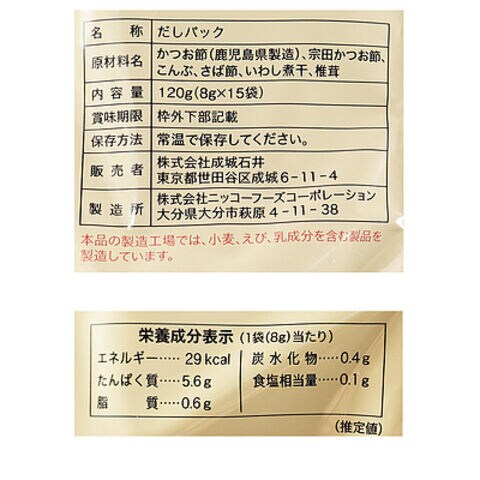 名称 だしパック
原材料名 かつお節(鹿児島県製造)、宗田かつお節、
こんぶ、さば節、いわし煮干、椎茸
内容量 120g(8g×15袋)
賞味期限 枠外下部記載
保存方法 常温で保存してください。
販売者 株式会社成城石井
東京都世田谷区成城6-11-4
製造所 株式会社ニッコーフーズコーポレーション
大分県大分市萩原4-11-38
本品の製造工場では、小麦、えび、乳成分を含む製品を
製造しています。
栄養成分表示 (1袋(8g)当たり)
エネルギー……29kcal 炭水化物…0.4g
たんぱく質……5.6g 食塩相当量…0.1g
脂質……0.6g
(推定値)